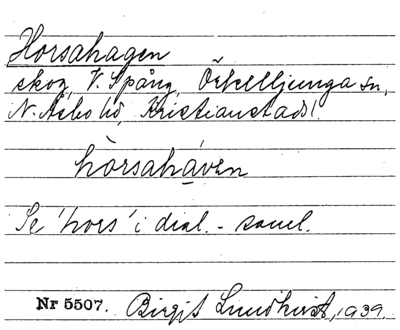 Horsahagen
skog, V. Spång, Örkelljunga sn,
N. Åsbo hd, Kristianstads l.
hòrsahą́ven
Se 'hors' i dial. - saml.
Nr 5507. Birgit Lundkvist, 1939.